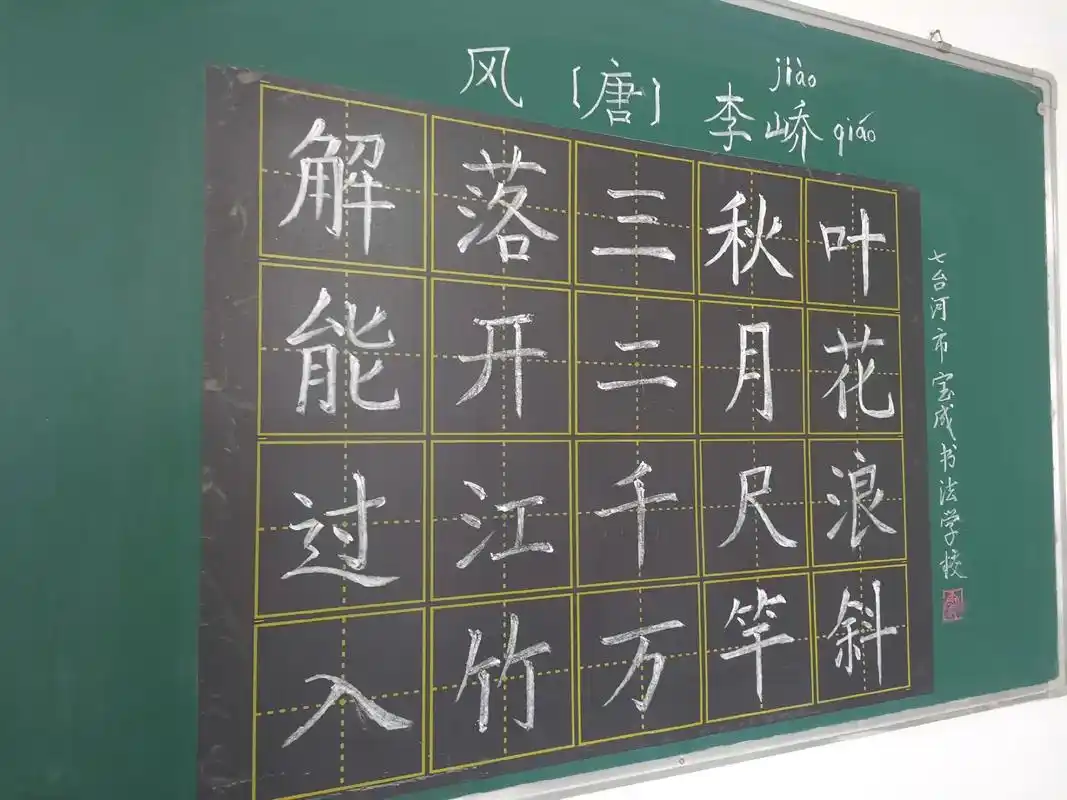 风 〔唐〕 李峤 jiào qiáo
解落三秋叶
能开二月花
过江千尺浪
入竹万竿斜
七台河市宝成书法学校